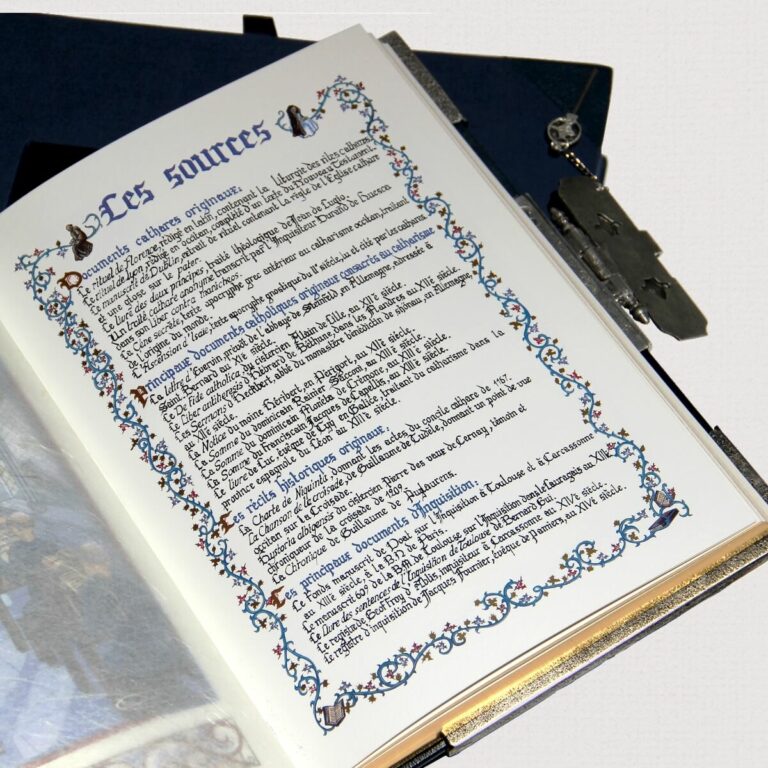 Les sources
Documents cathares originaux:
Le rituel de Florence, rédigé en latin, contenant la liturgie des rites cathares.
Le rituel de Lyon, rédigé en occitan, complété d'un texte du Nouveau Testament.
Le manuscrit de Dublin, extrait de rituel contenant la règle de l'Église cathare
et une glose sur le pater.
Le livre des deux principes, traité théologique de Jean de Lugio.
Un traité cathare anonyme transcrit par l'Inquisiteur Durand de Huesca
dans son liber contra manicheos.
La Cène secrète, texte apocryphe grec antérieur au catharisme occitan, traitant
de l'origine du monde.
L'Ascension d'Isaïe, texte apocryphe gnostique du IIe siècle, lu et cité par les cathares.
Principaux documents catholiques originaux consacrés au catharisme
La lettre d'Evervin, prévôt de l'abbaye de Steinfeld, en Allemagne, adressée à
Saint Bernard au XIIe siècle.
Le De Fide catholica, du cistercien Alain de Lille, au XIIe siècle.
Le Liber antiheresis d'Ebrard de Béthune, dans les Flandres au XIIe siècle.
Les Sermons d'Eckbert, abbé du monastère bénédictin de Shönau, en Allemagne,
au XIIe siècle.
La Notice du moine Héribert, en Périgord, au XIIe siècle.
La Somme du dominicain Rainier Sacconi, au XIIIe siècle.
La Somme du dominicain Moneta de Crémone, au XIIIe siècle.
La Somme du franciscain Jacques de Capellis, au XIIIe siècle.
Le livre de Luc, évêque de Tuy en Galice, traitant du catharisme dans la
province espagnole du Léon au XIIIe siècle.
Les récits historiques originaux,
La Charte de Niquinta, donnant les actes du concile cathare de 1167.
La Chanson de la croisade, de Guillaume de Tudèle, donnant un point de vue
occitan sur la Croisade.
Hystoria albigensis du cistercien Pierre des vaux de Cernay, témoin et
chroniqueur de la croisade de 1209.
La Chronique de Guillaume de Puylaurens.
Les principaux documents d'Inquisition.
Le Fonds manuscrit de Doat sur l'Inquisition à Toulouse et à Carcassonne
au XIIIe siècle, à la B.N. de Paris.
Le manuscrit 609 de la B.M. de Toulouse sur l'Inquisition dans le Lauragais au XIIIe
Le livre des sentences de l'Inquisition de Toulouse de Bernard Gui.
Le registre de Geoffroy d'Ablis, inquisiteur à Carcassonne au XIVe siècle.
Le registre d'inquisition de Jacques Fournier, évêque de Pamiers, au XIVe siècle.